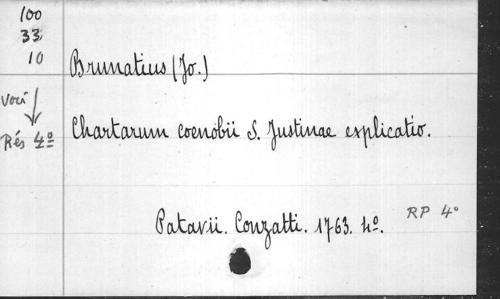 100
33
10
Brunatius (Jo.)
Voir
Rés 4º
Chartarum coenobii S. Justinae explicatio.
Patavii. Conzatti. 1763. 4º.
RP 4º